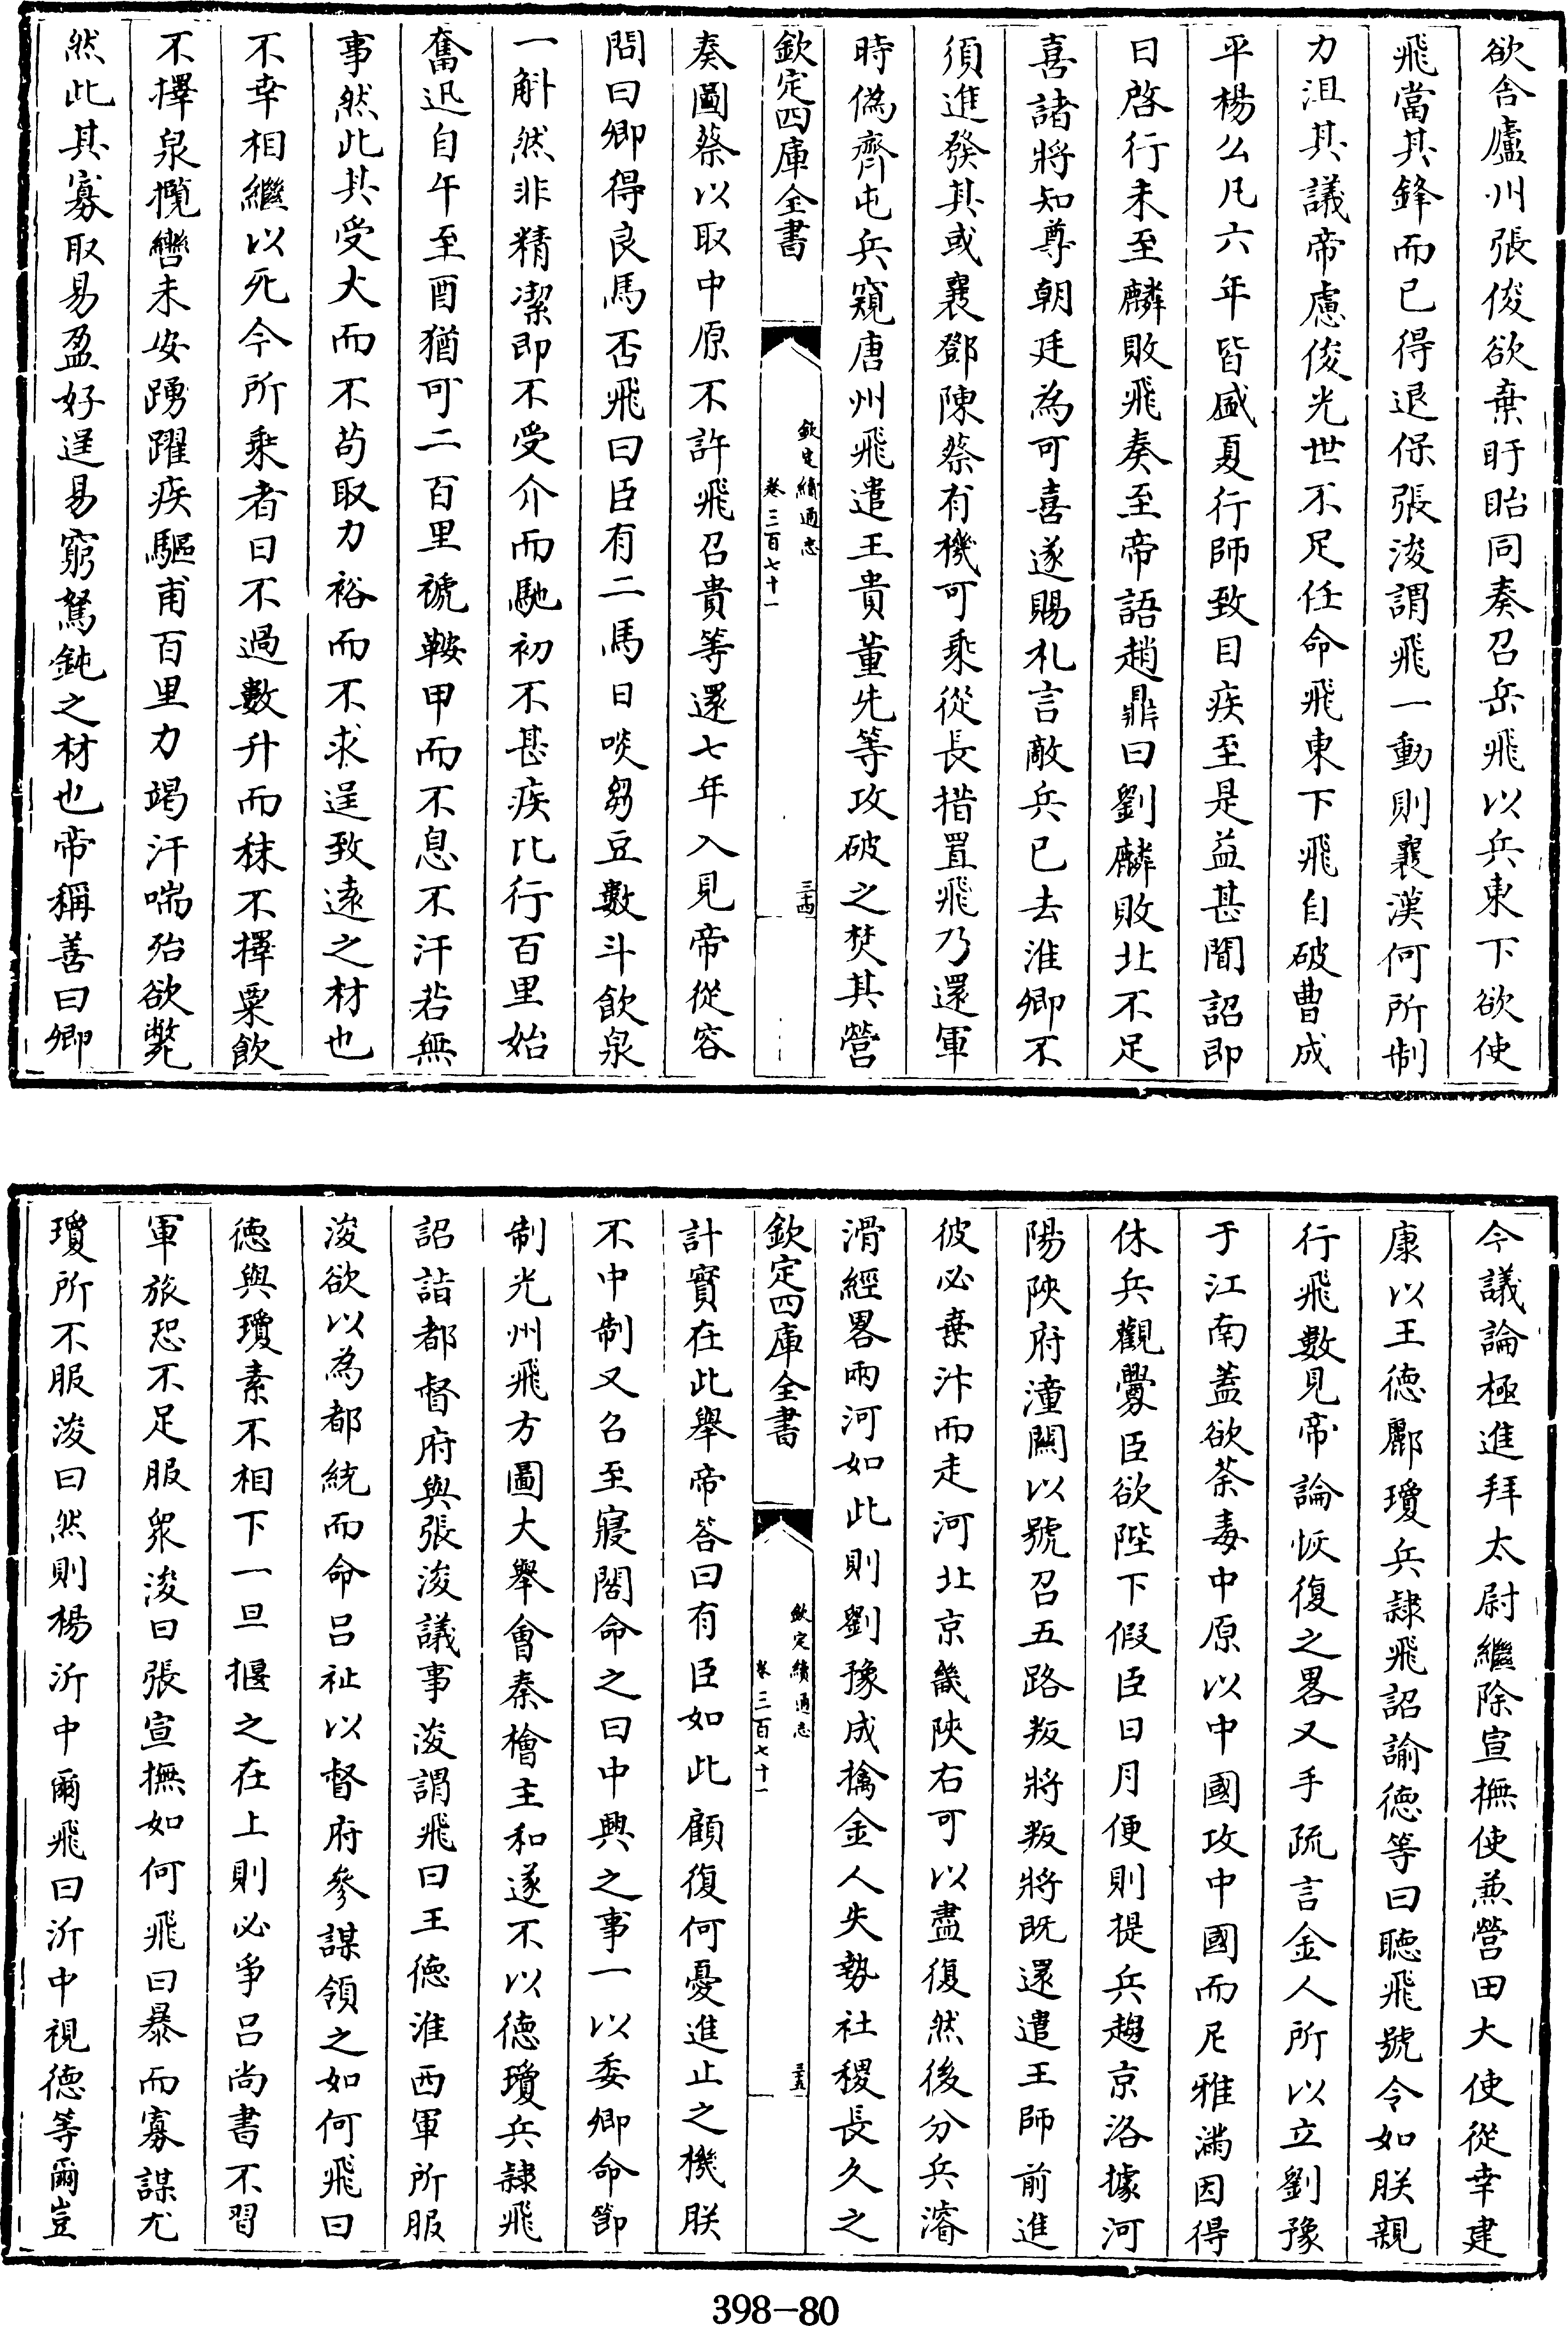 欲舍廬州張俊欲棄盱眙同奏召岳飛以兵東下欲使
飛當其鋒而已得退保張浚謂飛一動則襄漢何所制
力沮其議帝慮俊光世不足任命飛東下飛自破曹成
平楊么凡六年皆盛夏行師致目疾至是益甚聞詔即
日啓行未至麟敗飛奏至帝語趙鼎曰劉麟敗北不足
喜諸將知尊朝廷為可喜遂賜札言敵兵已去淮卿不
須進發其或襄鄧陳蔡有機可乘從長措置飛乃還軍
時偽齊屯兵窺唐州飛遣王貴董先等攻破之焚其營
欽定四庫全書
欽定續通志
卷三百七十一
三四
奏圖蔡以取中原不許飛召貴等還七年入見帝從容
問曰卿得良馬否飛曰臣有二馬日啖芻豆數斗飲泉
一斛然非精潔即不受介而馳初不甚疾比行百里始
奮迅自午至酉猶可二百里褫鞍甲而不息不汗若無
事然此其受大而不苟取力裕而不求逞致遠之材也
不幸相繼以死今所乘者日不過數升而秣不擇粟飲
不擇泉攬轡未安踴躍疾驅甫百里力竭汗喘殆欲斃
然此其寡取易盈好逞易窮駑鈍之材也帝稱善曰卿
今議論極進拜太尉繼除宣撫使兼營田大使從幸建
康以王德酈瓊兵隸飛詔諭德等曰聽飛號令如朕親
行飛數見帝論恢復之畧又手疏言金人所以立劉豫
于江南蓋欲荼毒中原以中國攻中國而尼雅滿因得
休兵觀釁臣欲陛下假臣日月便則提兵趨京洛據河
陽陝府潼關以號召五路叛將叛將既還遣王師前進
彼必棄汴而走河北京畿陝右可以盡復然後分兵濬
滑經畧兩河如此則劉豫成擒金人失勢社稷長久之
欽定四庫全書
欽定續通志
卷三百七十一
三五
計實在此舉帝答曰有臣如此顧復何憂進止之機朕
不中制又召至寢閤命之曰中興之事一以委卿命節
制光州飛方圖大舉會秦檜主和遂不以德瓊兵隸飛
詔詣都督府與張浚議事浚謂飛曰王德淮西軍所服
浚欲以為都統而命吕祉以督府參謀領之如何飛曰
德與瓊素不相下一旦揠之在上則必爭吕尚書不習
軍旅恐不足服衆浚曰張宣撫如何飛曰暴而寡謀尤
瓊所不服浚曰然則楊沂中爾飛曰沂中視德等爾豈
398-80